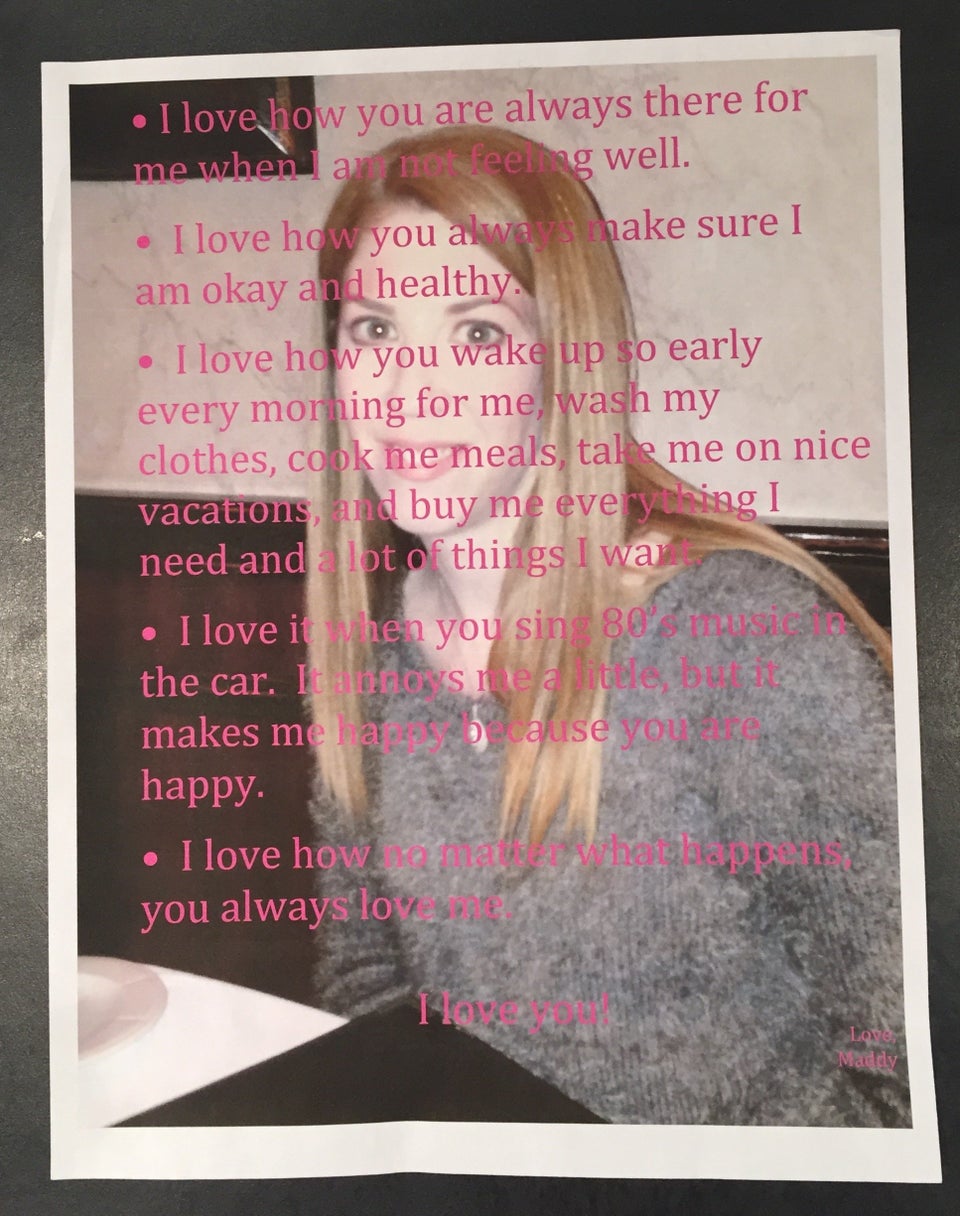 • I love how you are always there for
me when I am not feeling well.
• I love how you always make sure I
am okay and healthy.
• I love how you wake up so early
every morning for me, wash my
clothes, cook me meals, take me on nice
vacations, and buy me everything I
need and a lot of things I want.
• I love it when you sing 80's music in
the car. It annoys me a little, but it
makes me happy because you are
happy.
• I love how no matter what happens,
you always love me.
I love you!
Love,
Maddy